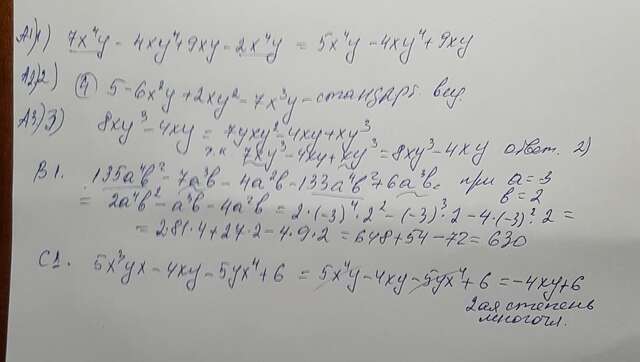 A1)1) 7x⁴y - 4xy⁴ + 9xy - 2x⁴y = 5x⁴y - 4xy⁴ + 9xy
A2)2) ④ 5 - 6x²y + 2xy² - 7x³y - стандарт. вид.
A3)3) 8xy³ - 4xy = 7yxy² - 4xy + xy³
т.к 7xy³ - 4xy + xy³ = 8xy³ - 4xy ответ. 2)
B1. 135a⁴b² - 7a³b - 4a²b - 133a⁴b² + 6a³b. при a = -3
b = 2
= 2a⁴b² - a³b - 4a²b = 2·(-3)⁴·2² - (-3)³·2 - 4·(-3)²·2 =
= 2·81·4 + 27·2 - 4·9·2 = 648 + 54 - 72 = 630
C1. 5x³yx - 4xy - 5yx⁴ + 6 = 5x⁴y - 4xy - 5yx⁴ + 6 = -4xy + 6
2ая степень
многочл.